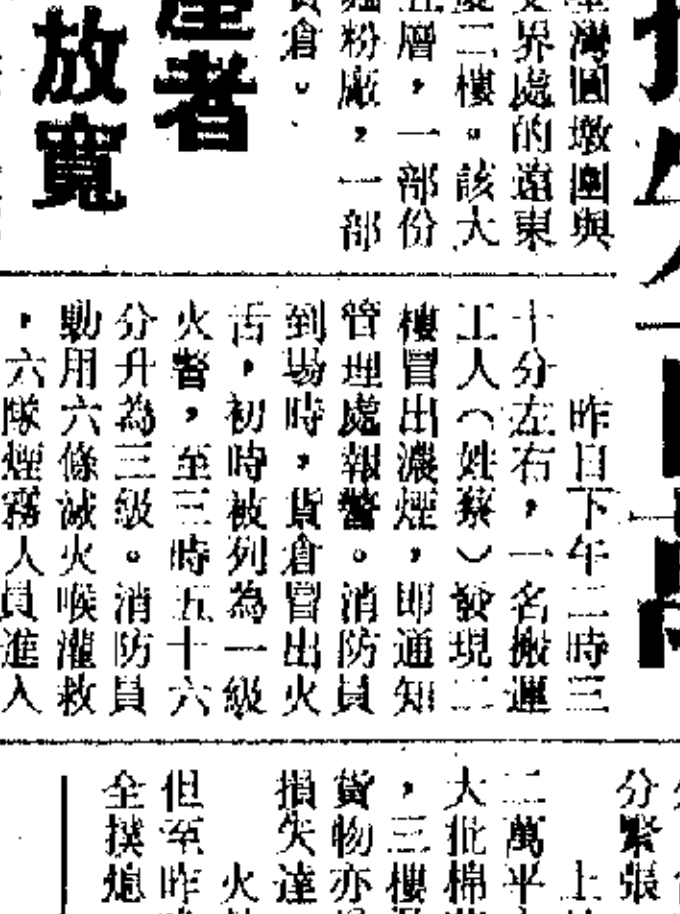 產者
放寬
臺灣圓墩圍與
界處的遠東
二樓。該大
層，一部份
粉廠，一部
倉。
昨日下午二時三
十分左右，一名搬運
工人（姓蔡）發現二
樓冒出濃煙，即通知
管理處報警。消防員
到場時，貨倉冒出火
舌，初時被列為一級
火警，至三時五十六
分升為三級。消防員
動用六條滅火喉灌救
，六隊煙霧人員進入
分緊張
上
二萬平
大批棉
，三樓
貨物亦
損失達
火
但至昨
全撲熄